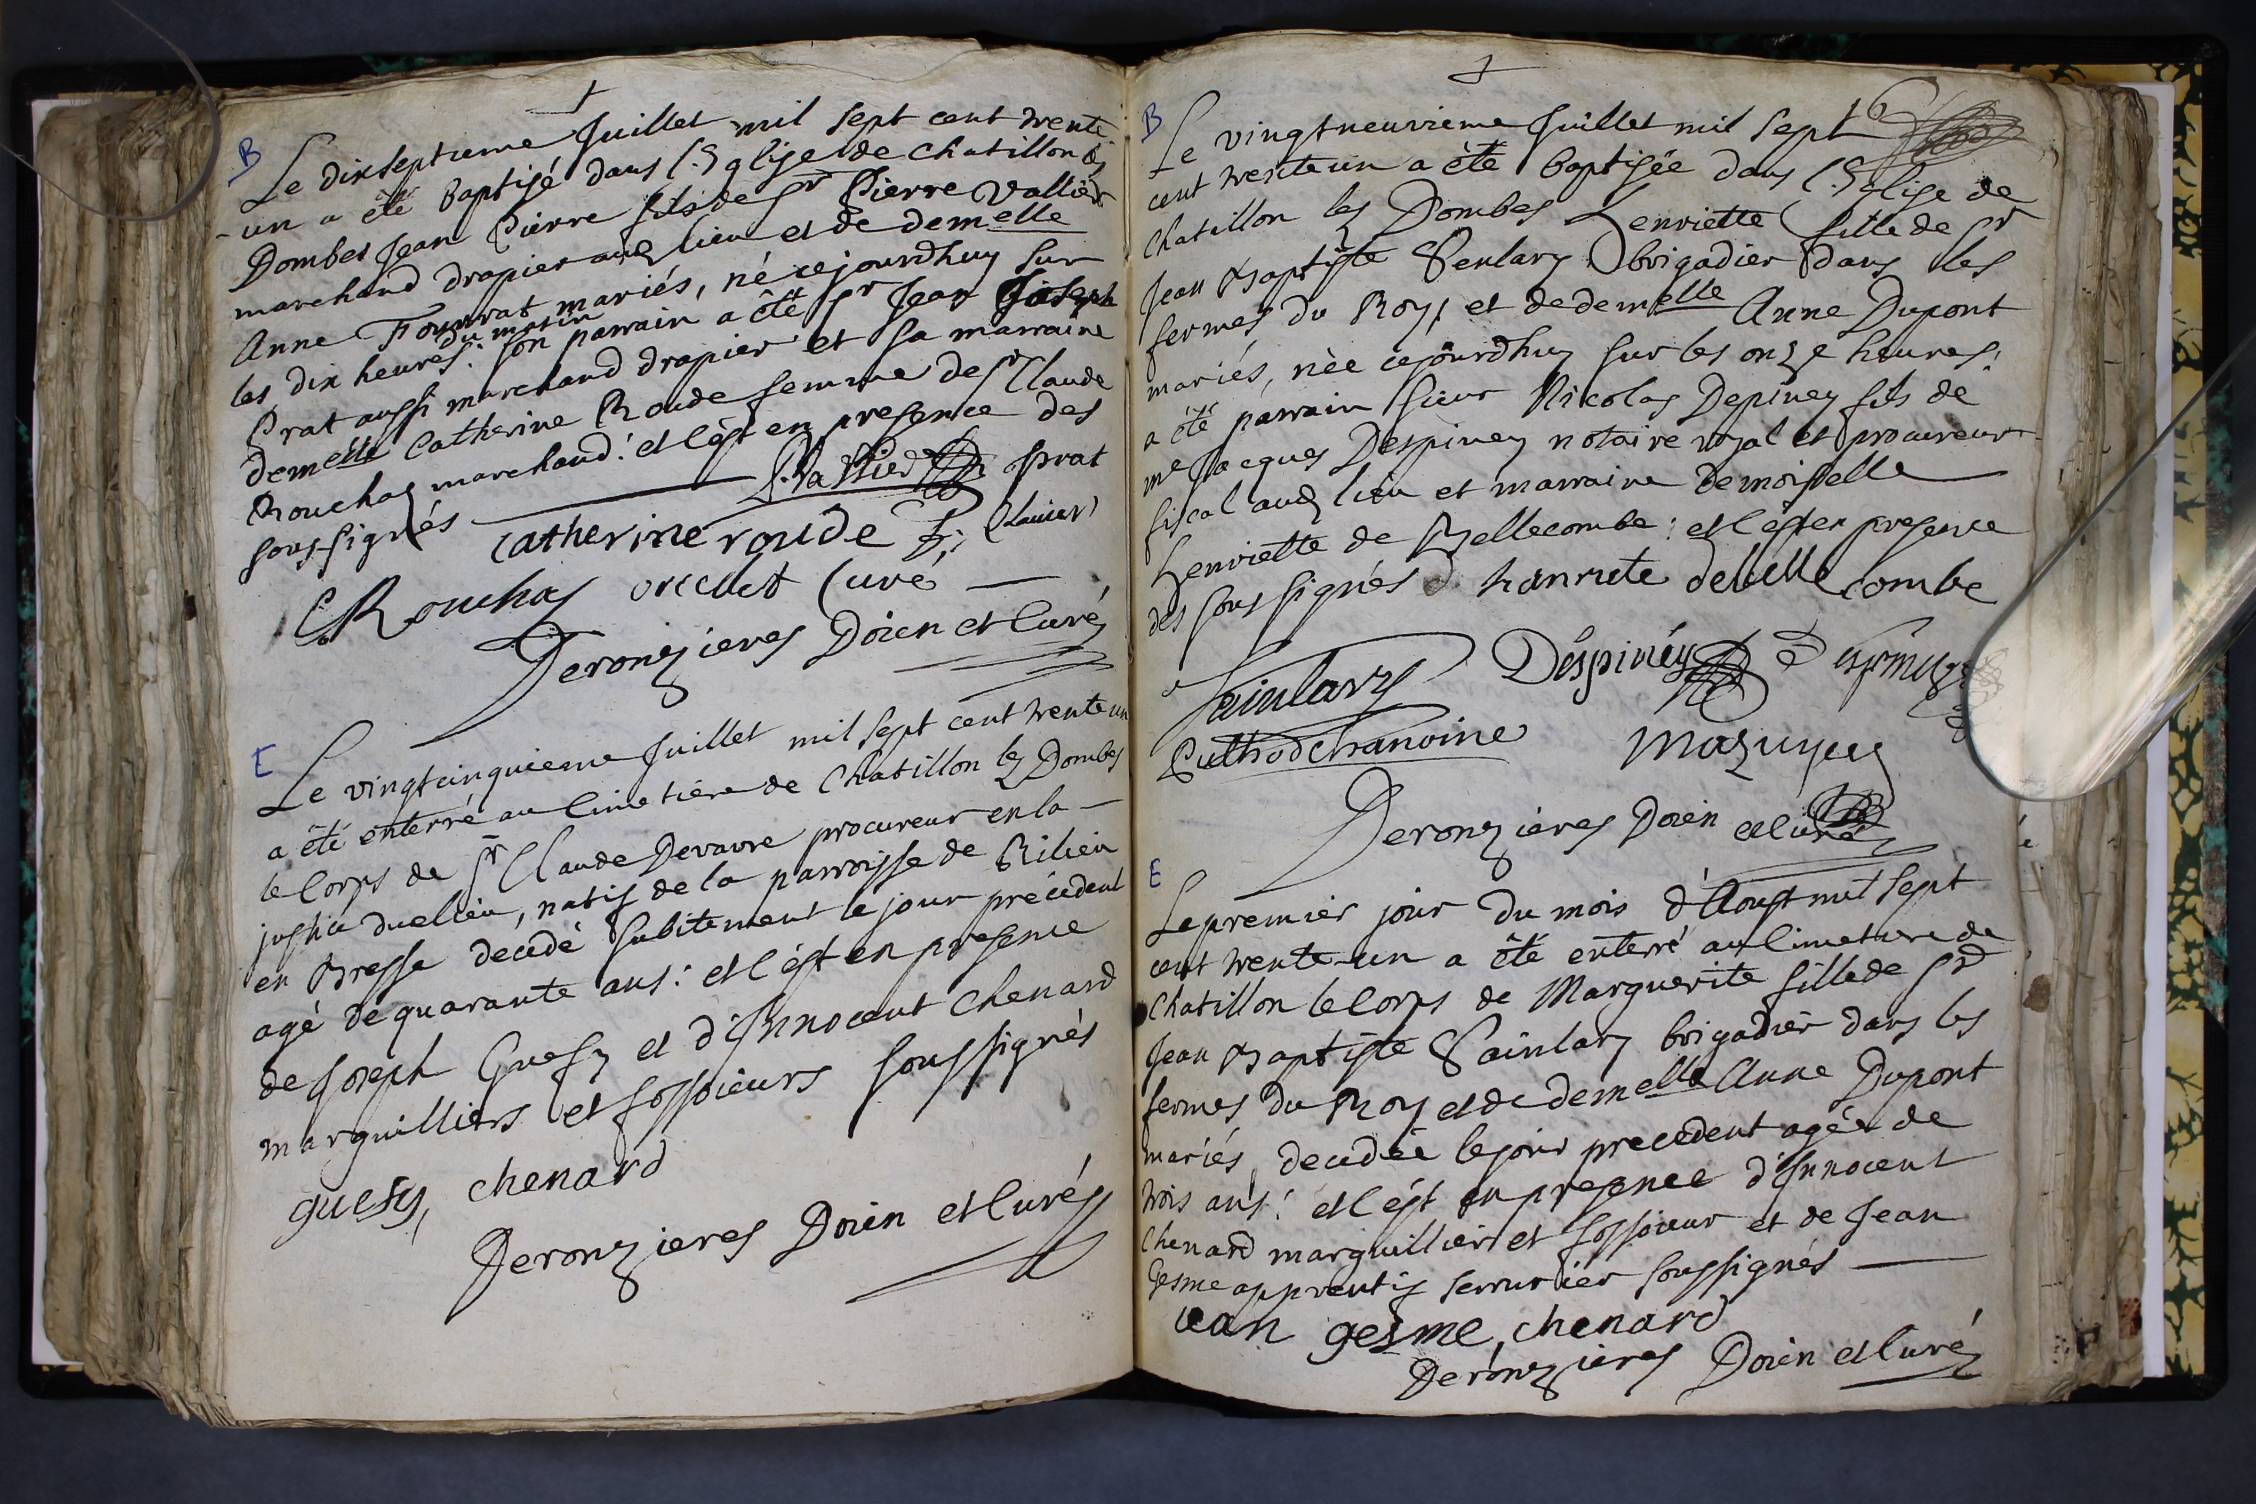 B
Le dixseptieme Juillet mil sept cent trente
-un a été baptisé dans l'Eglise de Chatillon lez
Dombes Jean Pierre fils de Sr Pierre Vallier
marchand drapier audz lieu et de demelle
Anne Fourrat mariés, né cejourdhuy sur
les dix heures du matin. son parrain a été Sr Jean Joseph
Prat aussi marchand drapier et sa marraine
demelle Catherine Roude femme de Sr Claude
Rouchaz marchand: et c'est en presence des
sous-signés P. Vallier Prat
catherine roude
C Rouchaz curé
Deronzieres Doien et Curé
E
Le vingtcinquieme Juillet mil sept cent trente un
a été enterré au Cimetiere de Chatillon lez Dombes
le Corps de Sr Claude Devavre procureur en la
justice dudlieu, natif de la parroisse de Rilieu
en Bresse decedé subitement le jour précedent
agé de quarante ans: et c'est en presence
de Joseph Guesy et d'Innocent Chenard
marguilliers et fossoieurs soussignés
guesy, chenard
Deronzieres Doien et Curé
B
Le vingtneuvieme Juillet mil sept
cent trente un a été baptisée dans l'Eglise de
Chatillon lez Dombes Henriette fille de Sr
Jean Baptiste Senlary brigadier dans les
fermes du Roy, et de demelle Anne Dupont
mariés, née cejourdhuy sur les onze heures:
a été parrain sieur Nicolas Depiney fils de
me Jacques Despiney notaire royal et procureur
fiscal audz lieu et marraine demoiselle
Henriette de Bellecombe: et c'est en presence
des sous signés hanriete debellecombe
Sainlary Déspinéy
Puthod chanoine Mazuyer
Deronzieres Doien et curé
E
Le premier jour du mois d'Aoust mil sept
cent trente-un a été enterré au Cimetiere de
Chatillon le Corps de Marguerite fille de Sr
Jean Baptiste Sainlary brigadier dans les
fermes du Roy et de demelle Anne Dupont
mariés, decedée le jour precedent agée de
trois ans: et c'est en presence d'Innocent
Chenard marguillier et fossoieur et de Jean
Gesme apprentif serrurier soussignés
iean gesme, chenard
Deronzieres Doien et Curé